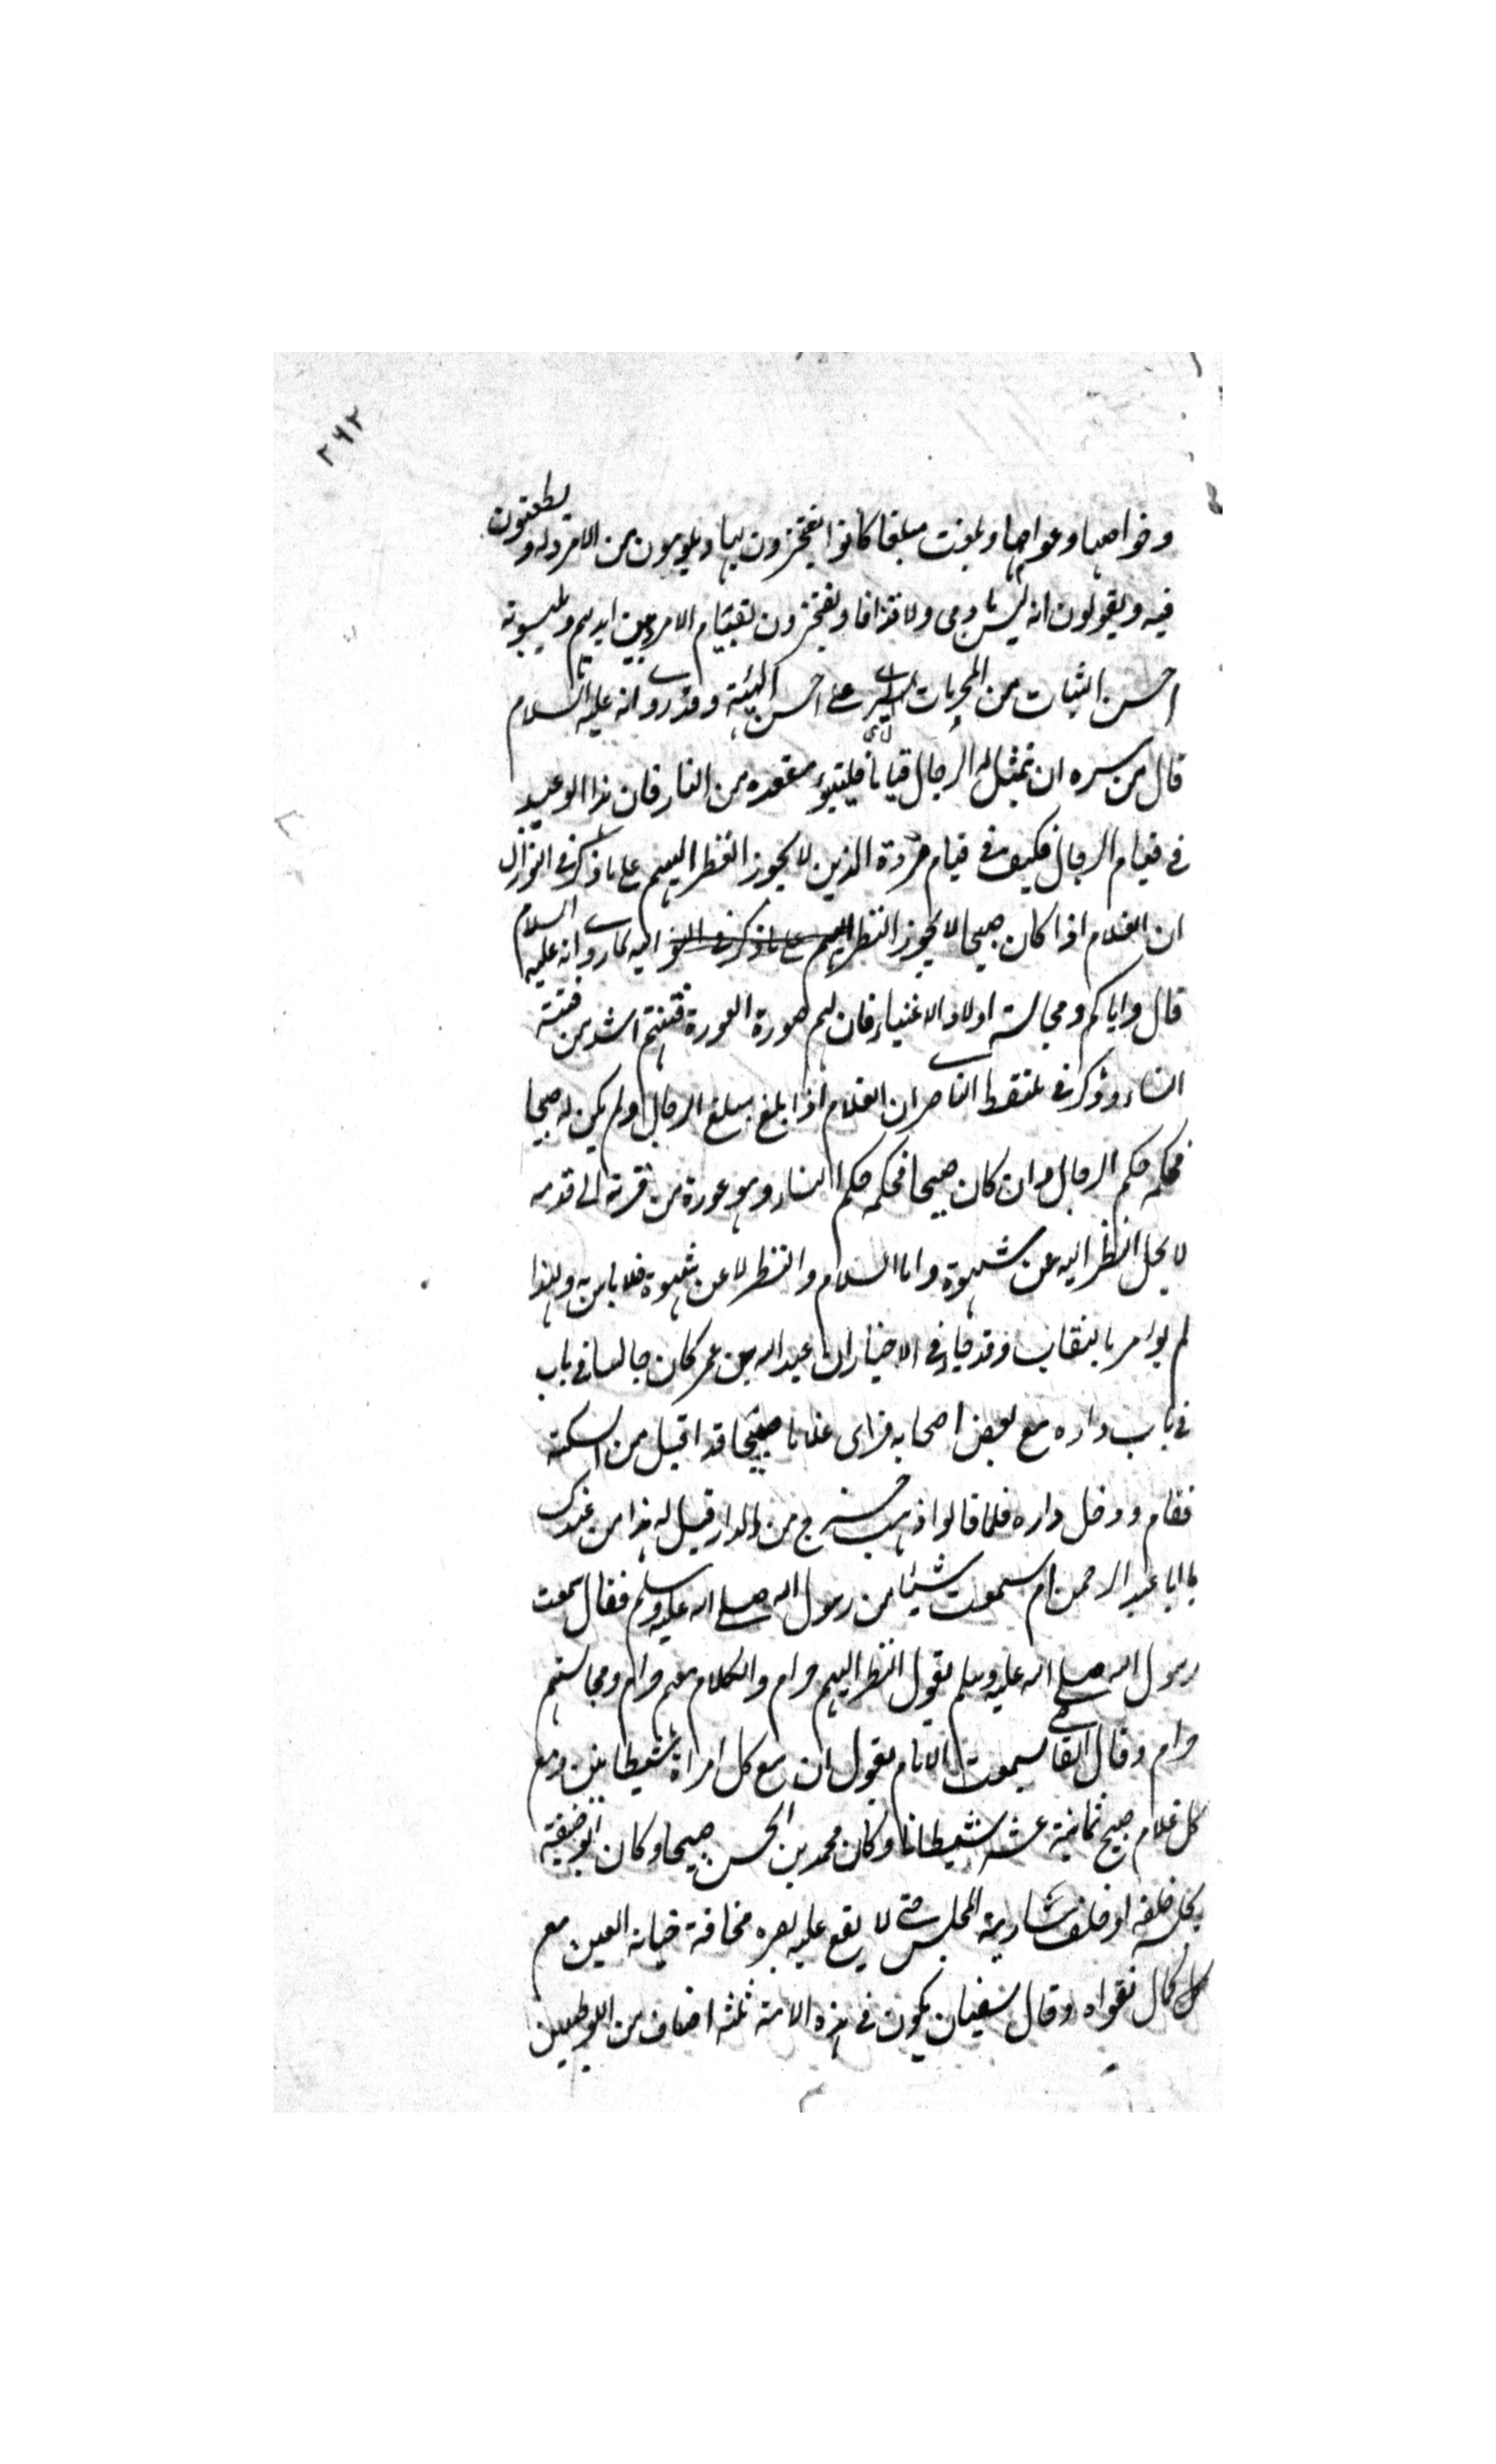 ٢٦٢
وخواصها وعوامها وبلغت مبلغا كانوا يفتخرون بها ويلومون من لا امرد له ويطعنون
فيه ويقولون انه ليس بادمى ولا قزافا ويفتخرون بقيام الامرد بين ايديهم ويلبسونه
احسن الثياب من على احسن الهيئة وقد روى انه عليه السلام
قال من سره ان يتمثل له الرجال قياما فليتبوء مقعده من النار فان هذا الوعيد
فى قيام الرجال فكيف فى قيام مردة الذين لا يجوز النظر اليهم على ما ذكر فى النوازل
ان الغلام اذا كان صبيحا لا يجوز النظر اليهم على ما ذكر فى النو اليه لما روى انه عليه السلام
قال واياكم ومجالسة اولاد الاغنياء فان لهم صورة العورة فتنتهم اشد من فتنة
النساء وذكر فى ملتقط الناصرى ان الغلام اذا بلغ مبلغ الرجال ولم يكن له صبيحا
فحكمه حكم الرجال وان كان صبيحا فحكمه حكم النساء وهو عورة من قرنه الى قدمه
لا يحل النظر اليه عن شهوة واما السلام والنظر لا عن شهوة فلا باس به ولهذا
لم يؤمر بالنقاب وقد جاء فى الاخبار ان عبد الله بن عمر كان جالسا فى باب
فى باب داره مع بعض اصحابه فراى غلاما صبيحا قد اقبل من السكة
فقام ودخل داره فلما قالوا ذهب خرج من الدار قيل له هذا من عندك
يا ابا عبد الرحمن ام سمعت شيئا من رسول الله صلى الله عليه وسلم فقال سمعت
رسول الله صلى الله عليه وسلم يقول النظر اليهم حرام والكلام معهم حرام ومجالستهم
حرام وقال القاضى سمعت الامام يقول ان مع كل امراة شيطانين ومع
كل غلام صبيح ثمانية عشر شيطانا وكان محمد بن الحسن صبيحا وكان ابو حنيفة
يجلسه خلفه او خلف سارية المجلس حتى لا يقع عليه بصره مخافة خيانة العين مع
كمال تقواه وقال سفيان يكون فى هذه الامة ثلثة اصناف من اللوطيين